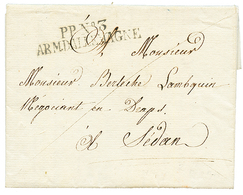 PP. N° 3
ARM. D'ALLEMAGNE
A Monsieur
Monsieur Berteche Lambquin
Négociant en Draps
A Sédan